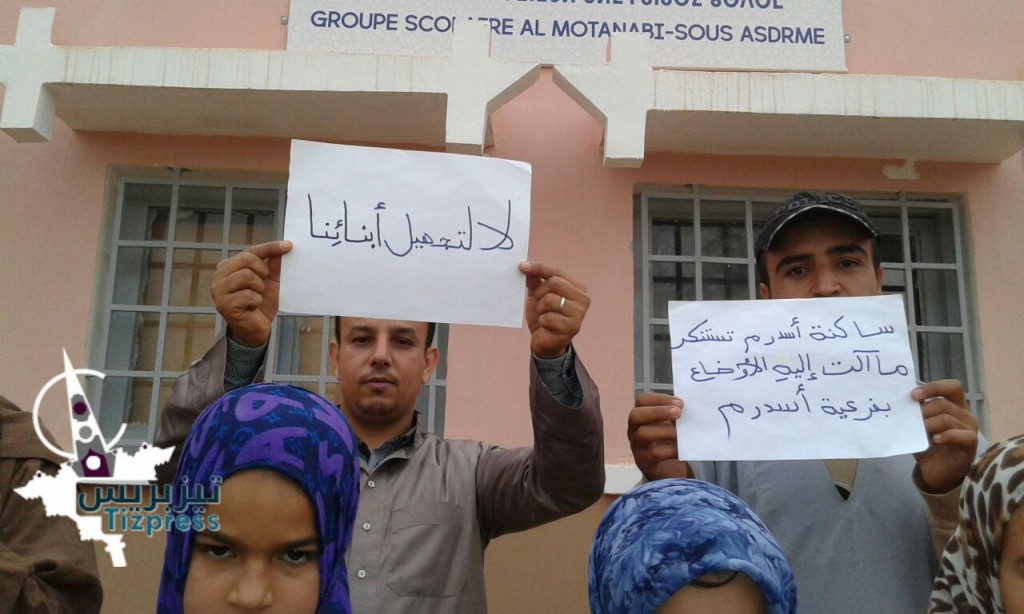 GROUPE SCOLAIRE AL MOTANABI-SOUS ASDRME
لا لتجهيل أبنائِنا
ساكنة أسدرم تستنكر
ما آلت إليه الأوضاع
بفرعية أسدرم
تيزبريس
Tizpress